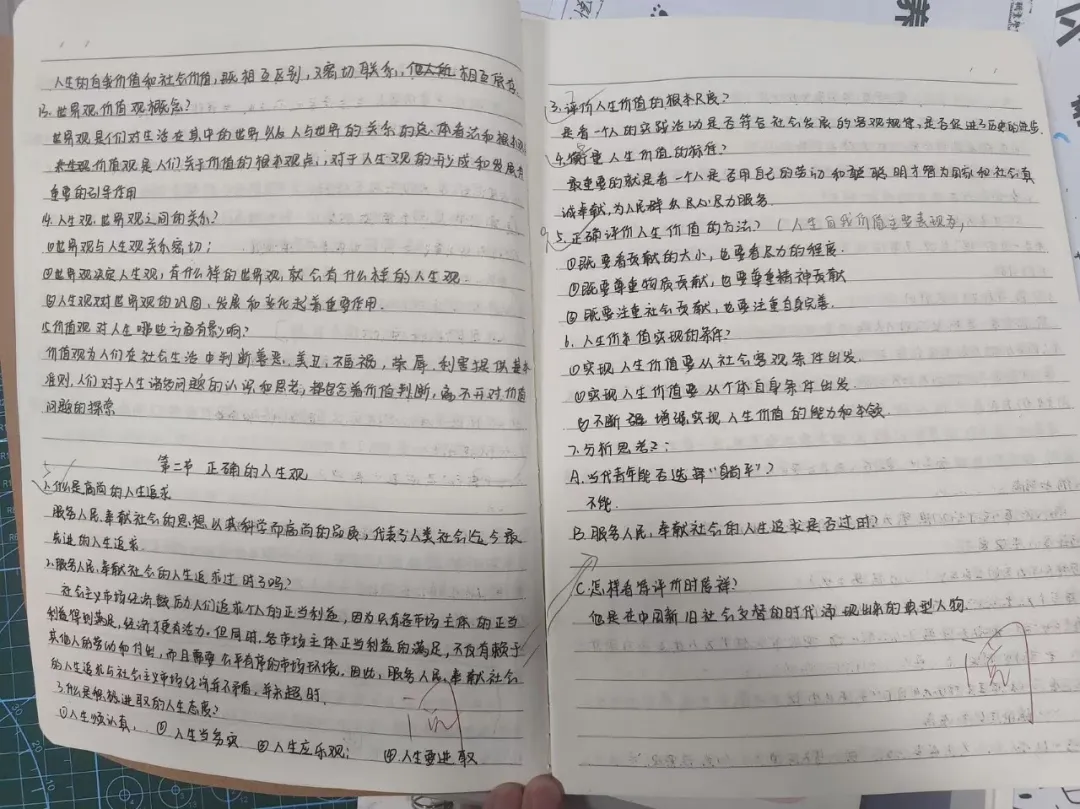 人生的自我价值和社会价值，既相互区别，又密切联系，相互依存。
13. 世界观，价值观概念？
世界观是人们对生活在其中的世界以及人与世界的关系的总体看法和根本观
价值观是人们关于价值的根本观点，对于人生观的形成和发展有
重要的引导作用
4. 人生观，世界观之间的关系？
①世界观与人生观关系密切；
②世界观决定人生观，有什么样的世界观，就会有什么样的人生观.
③人生观对世界观的巩固、发展和变化起着重要作用.
15. 价值观对人生哪些方面有影响？
价值观为人们在社会生活中判断善恶、美丑、福祸，荣辱，利害提供基本
准则，人们对于人生诸多问题的认识和思考，都包含着价值判断，离不开对价值
问题的探索
第二节 正确的人生观
1. 什么是高尚的人生追求
服务人民，奉献社会的思想以其科学而高尚的品质，代表了人类社会迄今最
先进的人生追求.
2. 服务人民，奉献社会的人生追求过时了吗？
社会主义市场经济鼓励人们追求个人的正当利益，因为只有各市场主体的正当
利益得到满足，经济才更有活力。但同时，各市场主体正当利益的满足，不仅有赖于
其他人的劳动和付出，而且需要公平有序的市场环境。因此，服务人民，奉献社会
的人生追求与社会主义市场经济并不矛盾，并未超时.
3. 什么是积极进取的人生态度？
①人生须认真. ②人生当务实 ③人生应乐观； ④.人生要进取
3. 评价人生价值的根本尺度？
是看一个人的实践活动是否符合社会发展的客观规律，是否促进了历史的进步.
4. 衡量人生价值的标准？
最重要的就是看一个人是否用自己的劳动和聪明才智为国家和社会真
诚奉献，为人民群众尽心尽力服务.
5. 正确评价人生价值的方法？（人生自我价值主要表现为，
①既要看贡献的大小，也要看尽力的程度.
②既要尊重物质贡献，也要尊重精神贡献
③既要注重社会贡献，也要注重自身完善.
6. 人生价值实现的条件？
①实现人生价值要从社会客观条件出发.
②实现人生价值要从个体自身条件出发.
③不断增强实现人生价值的能力和本领.
7. 分析思考2：
A. 当代青年能否选择“躺平”？
不能.
B. 服务人民，奉献社会的人生追求是否过时？
C. 怎样看待评价时
他是在中国新旧社会交替的时代涌现出来的典型人物.